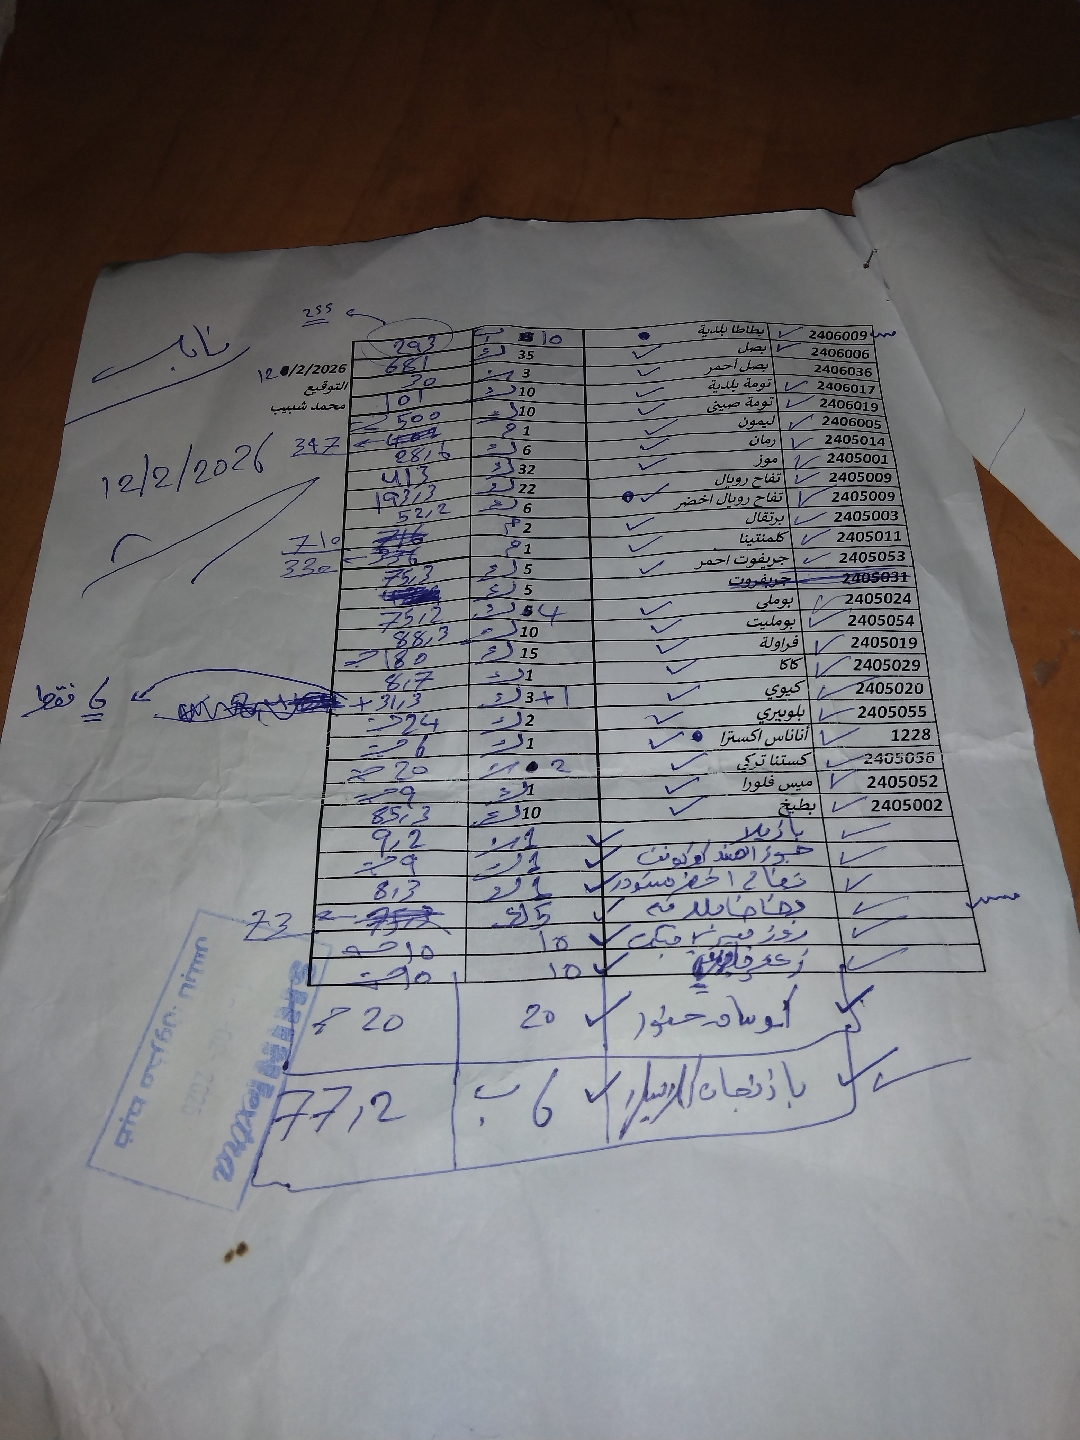 نابلس
12/2/2026
التوقيع
محمد شبيب
12/2/2026
255
2406009 بطاطا بلدية 10 ب 293
2406006 بصل 35 ك 681
2406036 بصل أحمر 3 ب 30
2406017 تومة بلدية 10 ك 101
2406019 تومة صيني 10 ك 500
2406005 ليمون 1 م 347
2405014 رمان 6 ك 28,6
2405001 موز 32 ك 413
2405009 تفاح رويال 22 ك 193,3
2405009 تفاح رويال اخضر 6 ك 52,2
2405003 برتقال 2 م 710
2405011 كلمنتينا 1 م 330
2405053 جريفوت احمر 5 ك 75,3
2405031 جريفروت 5 ك
2405024 بوملي 4 ك 75,2
2405054 بومليت 10 ك 88,3
2405019 فراولة 15 ك 180
2405029 كاكا 1 ك 8,7
2405020 كيوي 3+1 ك 31,3 +
6 فقط
2405055 بلوبيري 2 ك 24
1228 أناناس اكسترا 1 ك 6
2405056 كستنا تركي 2 ب 20
2405052 ميس فلورا 1 ك 9
2405002 بطيخ 10 ك 85,3
بازيلا 1 ب 9,2
جوز الهند 1 ك 9
تفاح اخضر مستورد 1 ك 8,3
5 ك 73
10 10
زعتر 10 10
20 20
باذنجان 6 ب 77,2
SHEINI Extra